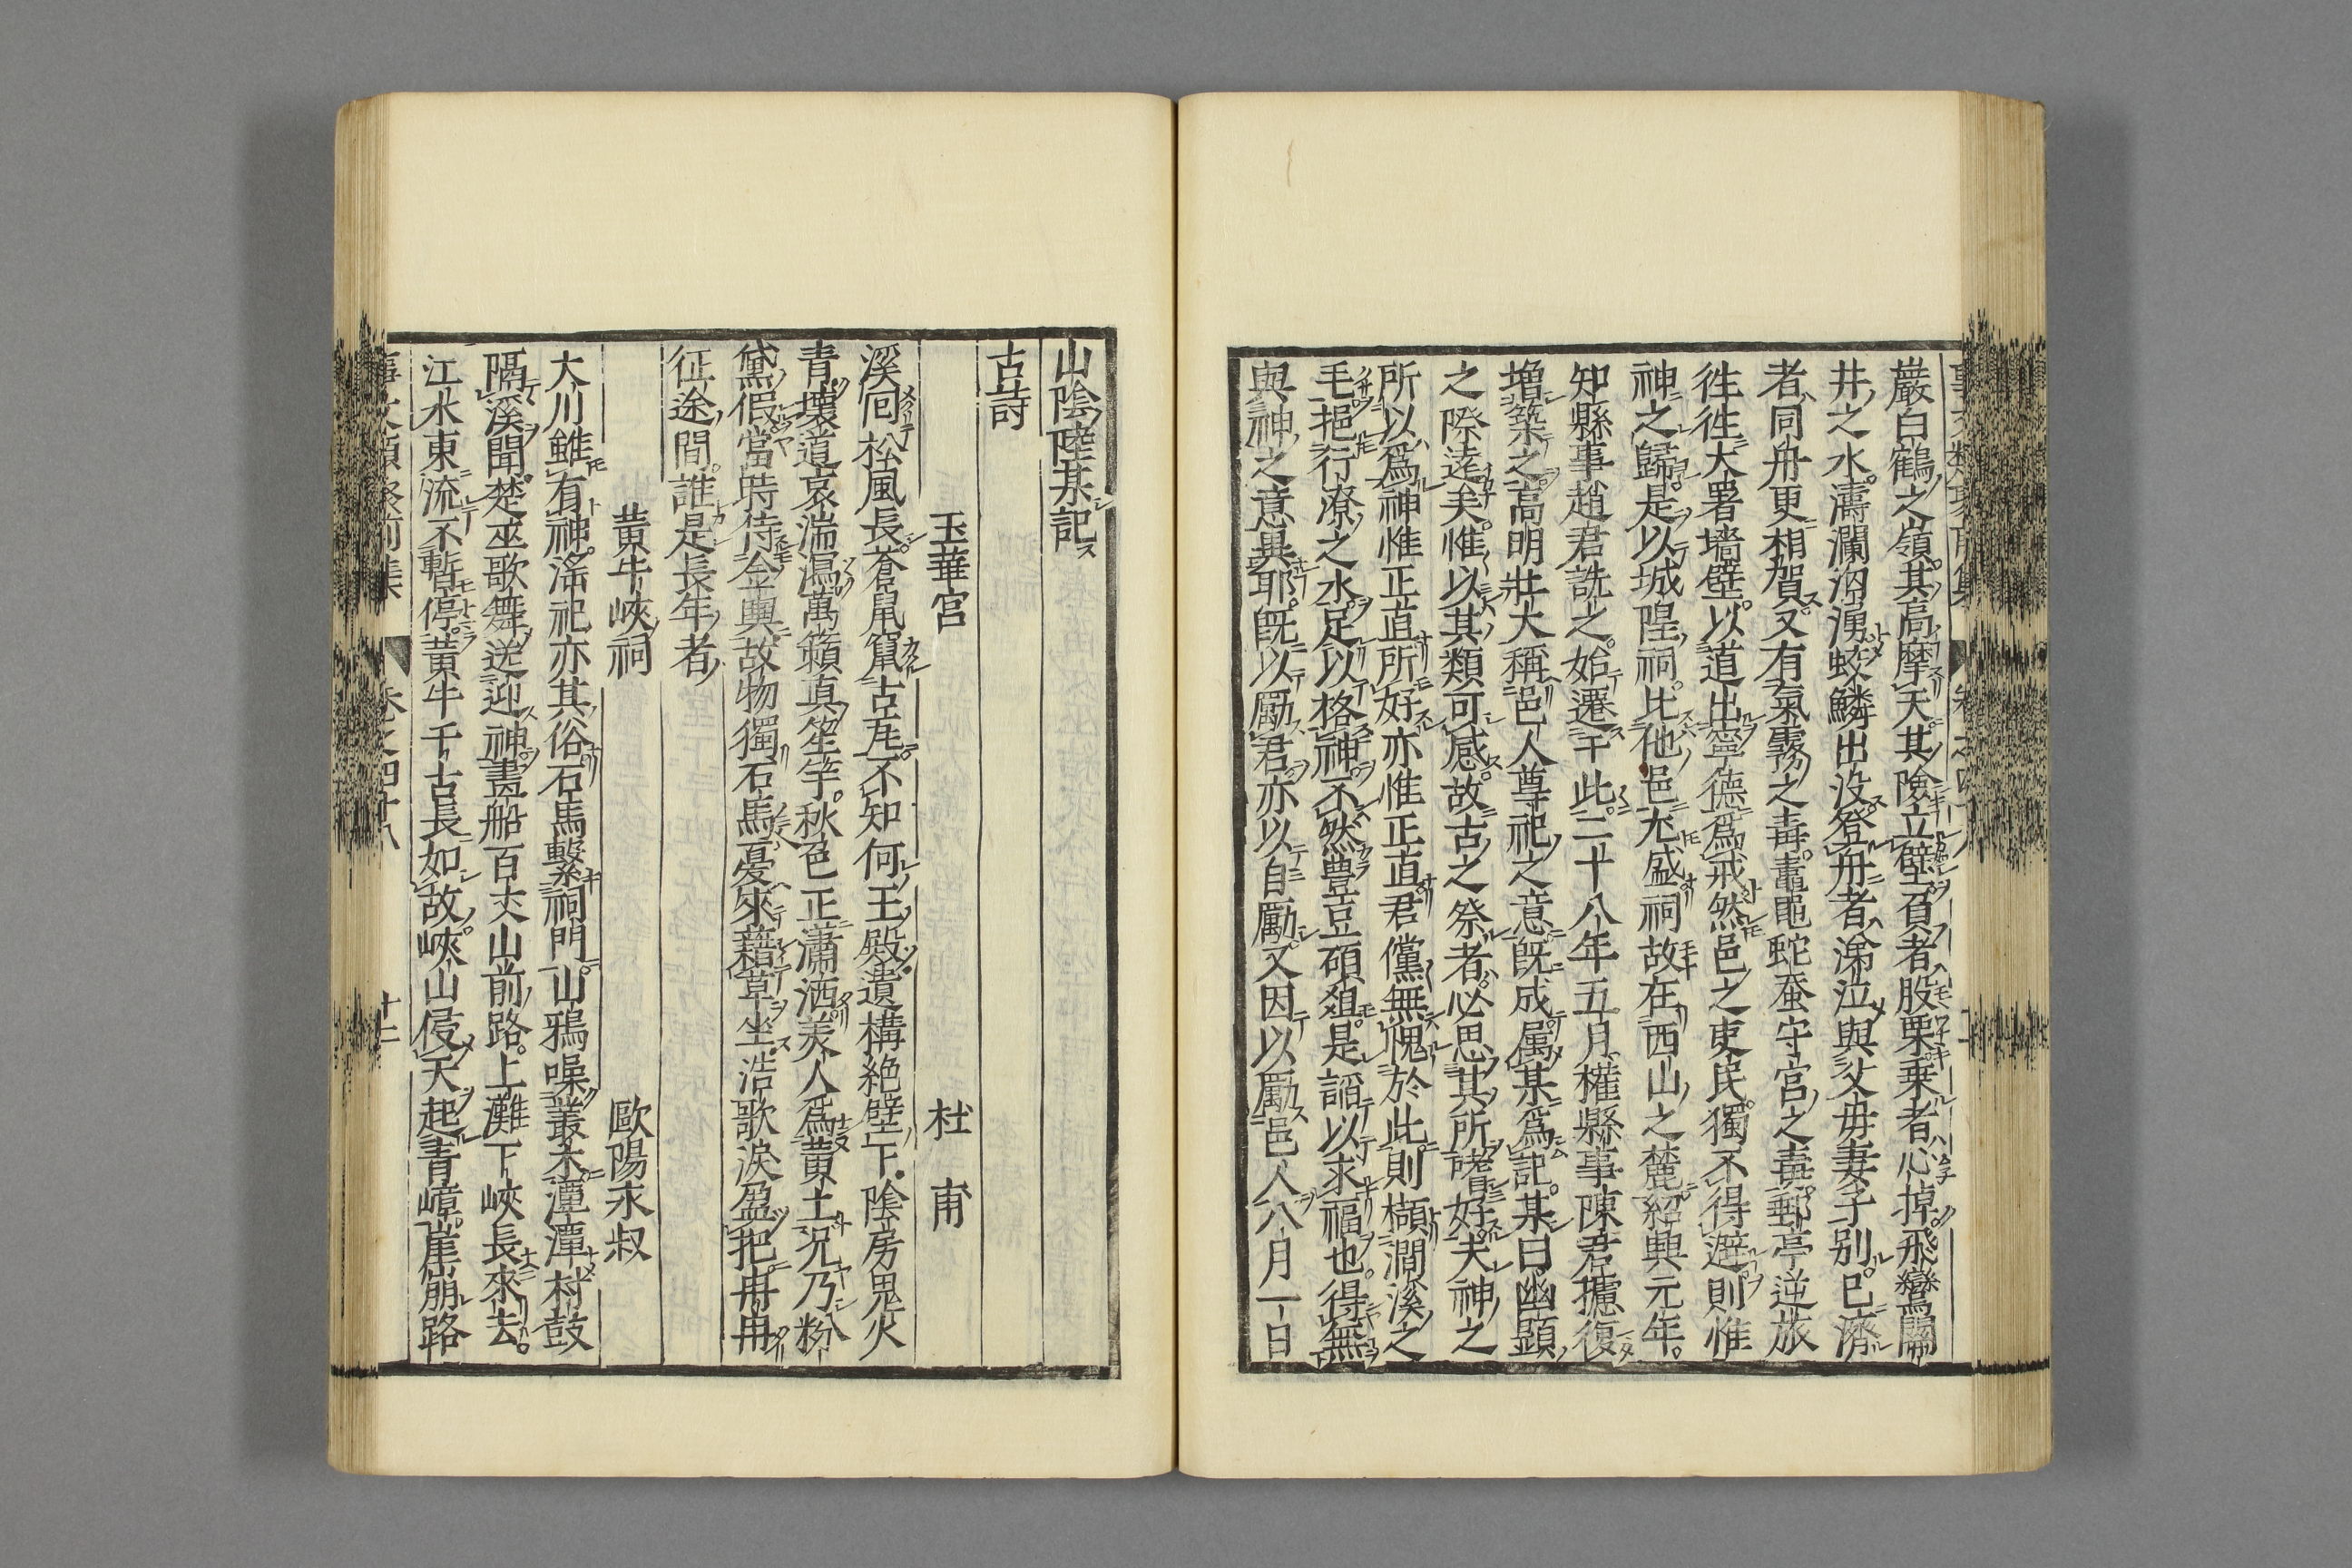 巖白鶴之嶺其高摩天其險立壁負者股栗乘者心掉飛鸞關
井之水濤瀾洶湧蛟鱗出没登舟者涕泣與父母妻子别已濟
者同舟更相賀又有氣霧之毒鼃黽蛇蚕守宮之毒郵亭逆旅
徃徃大署墻壁以道出寧德爲戒然邑之吏民獨不得避則惟
神之歸是以城隍祠比他邑尤盛祠故在西山之麓紹興元年
知縣事趙君詵之始遷于此二十八年五月權縣事陳君攄復
増築之高明壯大稱邑人尊祀之意既成属某爲記某曰幽顯
之際遠矣惟以其類可感故古之祭者必思其所嗜好夫神之
所以爲神惟正直所好亦惟正直君儻無愧於此則蘋澗溪之
毛挹行潦之水足以格神不然豊豆碩爼是謟以求福也得無
與神之意異耶既以勵君亦以自勵又因以勵邑人八月一日
山陰陸某記
古詩
玉華宮　杜甫
溪囘松風長蒼鼠竄古瓦不知何王殿遺構絶壁下陰房鬼火
青壊道哀湍瀉萬籟真笙竽秋色正瀟洒美人爲黄土况乃粉
黛假當時侍金輿故物獨石馬憂來藉草坐浩歌淚盈把冉冉
征途間誰是長年者
黄牛峽祠　歐陽永叔
大川雖有神淫祀亦其俗石馬繫祠門山鴉噪叢木潭潭村鼓
隔溪聞楚巫歌舞送迎神畫船百丈山前路上灘下峽長來去
江水東流不暫停黄牛千古長如故峽山侵天起青嶂崖崩路
卷之四十八
十二